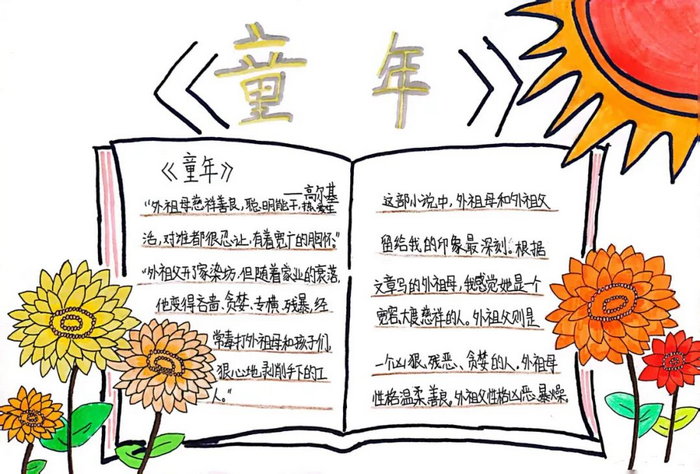 《童年》
《童年》
——高尔基
"外祖母慈祥善良，聪明能干，热爱生
活，对谁都很忍让，有着宽广的胸怀。"
"外祖父开了家染坊，但随着家业的衰落，
他变得吝啬、贪婪、专横、残暴，经
常毒打外祖母和孩子们，
狠心地剥削手下的工
人。"
这部小说中，外祖母和外祖父
留给我的印象最深刻。根据
文章写的外祖母，我感觉她是一个
宽容大度慈祥的人。外祖父则是
一个凶狠、残恶、贪婪的人。外祖母
性格温柔、善良。外祖父性格凶恶、暴燥。